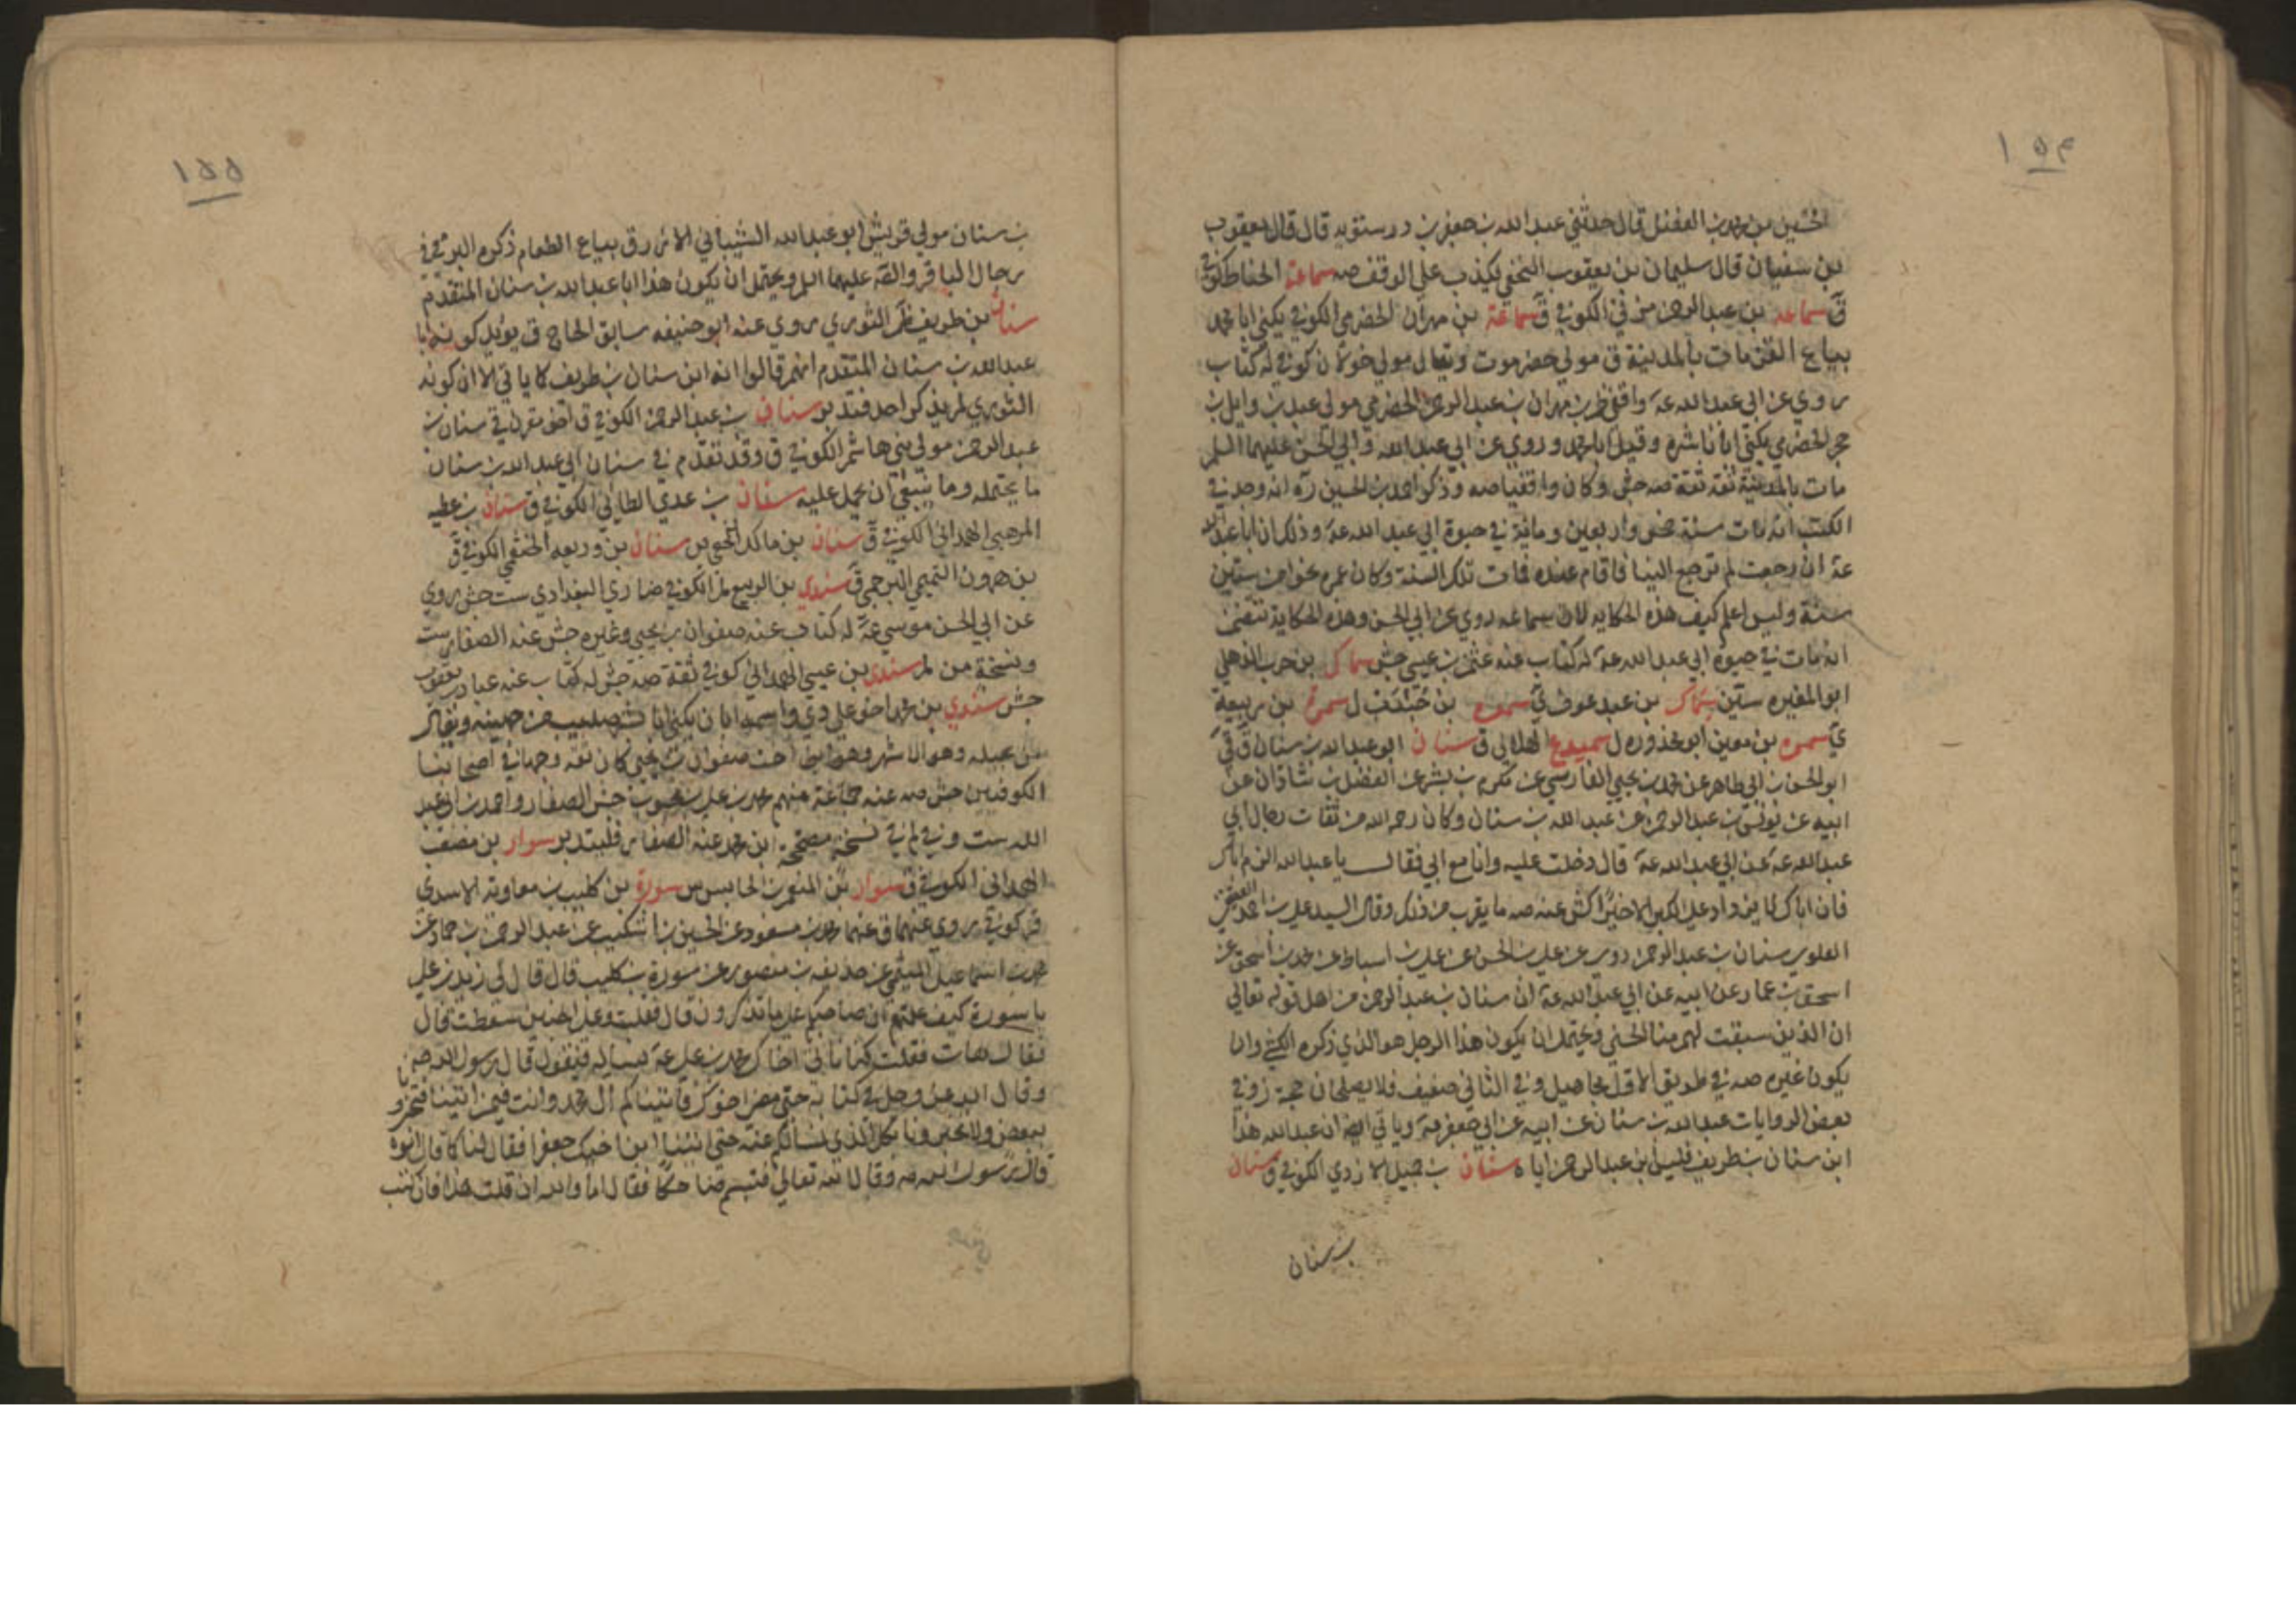 ١٥٤
الحسين بن محمد بن الفضل قال حدثني عبد الله بن جعفر بن درستويه قال قال يعقوب
بن سفيان قال سليمان بن يعقوب النخعي يكذب علي الوقف صه سماعة الحناط كوفي
ق سماعه بن عبد الرحمن مزني الكوفي ق سماعة بن مهران الحضرمي الكوفي يكنى ابا محمد
بياع القز مات بالمدينة ق مولي حضرموت ويقال مولي خولان كوفي له كتاب
روي عن ابي عبد الله عه واقفي ظم بن مهران بن عبد الرحمن الحضرمي مولي عبد بن وايل بن
حجر الحضرمي يكني ابا ناشره وقيل ابا محمد وروي عن ابي عبد الله وابي الحسن عليهما السلم
مات بالمدينة ثقة ثقة صه جش وكان واقفيا صه وذكر احمد بن الحسين ره انه وجد في
الكتب انه مات سنة خمس واربعين ومائة في حيوة ابي عبد الله عه وذلك ان ابا عبد الله
عه ان رجعت لم ترجع الينا فاقام عنده فمات تلك السنة وكان عمره نحوا من ستين
سنة وليس اعلم كيف هذه الحكايه لان سماعه روي عن ابي الحسن وهذه الحكاية تتضمن
انه مات في حيوة ابي عبد الله عه له كتاب عنه عثمن بن عيسي جش سماك بن حرب الذهلي
ابو المغيره سين سماك بن عبد عوف ي سمره بن جندب ل سمرة بن ربيعة
ي سمره بن معين ابو محذوره ل سميدع الهلالي ق سنان ابو عبد الله بن سنان ق قي
ابو الحسن بن ابي طاهر عن محمد بن يحيي الفارسي عن مكرم بن بشر عن الفضل بن شاذان عن
ابيه عن يونس بن عبد الرحمن عن عبد الله بن سنان وكان رحمه الله من ثقات رجال ابي
عبد الله عه عن ابي عبد الله عه قال دخلت عليه وانا مع ابي فقال يا عبد الله الزم اباك
فان اباك لا يزداد علي الكبر الا خيرًا كش عنه صه ما يقرب من ذلك وقال السيد علي بن احمد العقيقي
العلوي سنان بن عبد الرحمن روي عن علي بن الحسن عن علي بن اسباط عن محمد بن اسحق عن
اسحق بن عمار عن ابيه عن ابي عبد الله عه ان سنان بن عبد الرحمن من اهل قوله تعالي
ان الذين سبقت لهم منا الحسني ويحتمل ان يكون هذا الرجل هو الذي ذكره الكشي وان
يكون غيره صه في طريق الاول مجاهيل وفي الثاني ضعيف فلا يصلحان حجة ز وفي
بعض الروايات عبد الله بن سنان عن ابيه عن ابي جعفر عه وياتي ايضا ان عبد الله هذا
ابن سنان بن طريف فليس ابن عبد الرحمن اياه سنان بن جميل الازدي الكوفي ق سنان
بن سنان
١٥٥
بن سنان مولي قريش ابو عبد الله الشيباني الازرق بياع الطعام ذكره البرقي في
رجال الباقر والصه عليهما السلم ويحتمل ان يكون هذا ابا عبد الله بن سنان المتقدم
سنان بن طريف ظم الثوري روي عنه ابو حنيفه سابق الحاج ق يؤيد كونه ابا
عبد الله بن سنان المتقدم انهم قالوا انه ابن سنان بن طريف كما ياتي الا ان كونه
الثوري لم يذكر احد فتدبر سنان بن عبد الرحمن الكوفي ق اخو مقرن ق سنان بن
عبد الرحمن مولي بني هاشم الكوفي ق وقد تقدم في سنان ابي عبد الله بن سنان
ما يحتمله وما ينبغي ان يحمل عليه سنان بن عدي الطائي الكوفي ق سنان بن عطيه
المرهبي الهمداني الكوفي ق سنان بن مالك النخعي بن سنان بن وديعه الخثعمي الكوفي ق
بن هرون التميمي البرجمي ق سندي بن الربيع لم الكوفي ضا ري البغدادي ست جش روي
عن ابي الحسن موسي عه له كتاب عنه صفوان بن يحيي وغيره جش عنه الصفار ست
ونسخة من لم سندي بن عيسي الهمداني كوفي ثقة صه جش له كتاب عنه عباد بن يعقوب
جش سندي بن محمد اخو علي دي واسمه ابان يكني ابا بشر صليب من جهينه ويقال
من بجيله وهو الاشهر وهو ابن اخت صفوان بن يحيي كان ثقه وجها في اصحابنا
الكوفيين جش صه عنه جماعة منهم محمد بن علي بن محبوب جش الصفار واحمد بن ابي عبد
الله ست وفي لم في نسخة مصححة ابن محمد عنه الصفار فليتدبر سوار بن مصعب
الهمداني الكوفي ق سوار بن المنعم بن الحابس سين سورة بن كليب بن معاوية الاسدي
قر كوفي يروي عنهما ق عنه محمد بن مسعود عن الحسين بن اشكيب عن عبد الرحمن بن حماد عن
محمد بن اسماعيل الميثمي عن حذيفه بن منصور عن سورة بن كليب قال قال لي زيد بن علي
يا سورة كيف علمتم ان صاحبكم علي ما تذكرون قال فقلت علي الخبير سقطت قال
فقال هات فقلت كنا ناتي اخاك محمد بن علي عه نساله فيقول قال رسول الله صه
وقال الله عز وجل في كتابه حتي مضى اخوك فاتيناكم ال محمد وانت فيمن اتينا فتخبرونا
ببعض ولا تخبرونا بكل الذي نسالكم عنه حتي اتينا ابن اخيك جعفرا فقال لنا كما قال ابوه
قال رسول الله صه وقال الله تعالي فتبسم ضاحكا فقال اما والله ان قلت هذا فان كتب